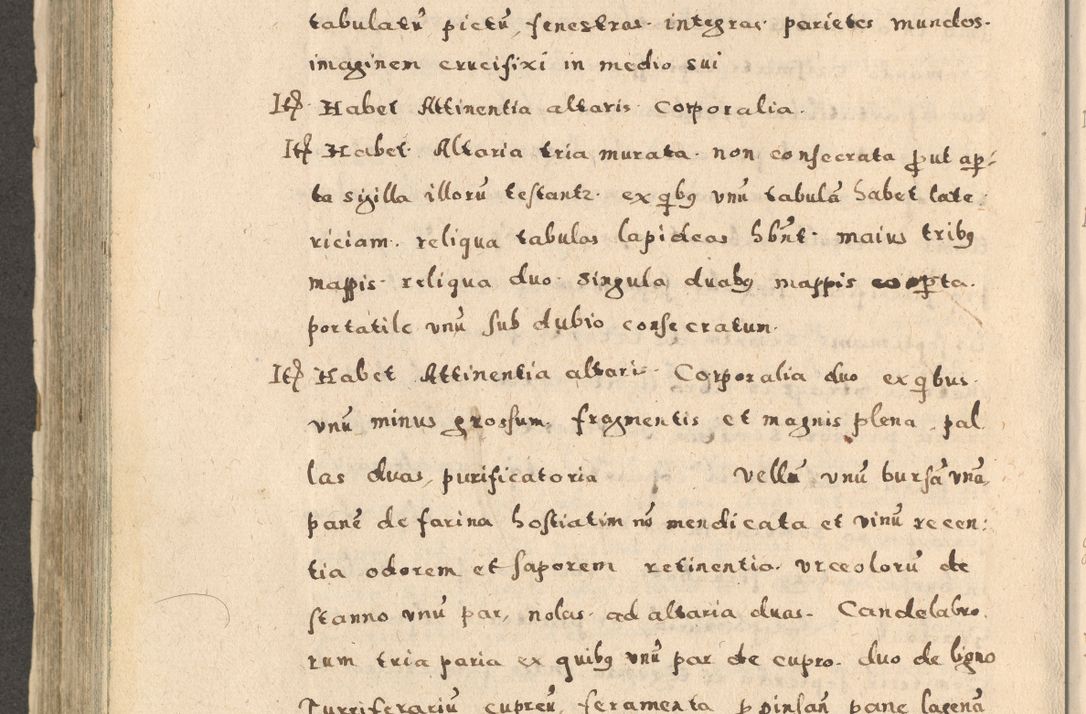 tabulatū pictū, fenestras integras parietes mundos.
imaginem crucifixi in medio sui
Itꝫ Habet Attinentia altaris Corporalia
Itꝫ Habet Altaria tria murata non consecrata ꝓut aꝑ-
ta sigilla illorū testantꝛ. ex qibꝫ vnū tabulā habet late
riciam. reliqua tabulas lapideas hbn̄t. maius tribꝫ
mappis. reliqua duo singula duabꝫ mappis cooꝑta.
portatile vnū sub dubio consecratum.
Itꝫ Habet Attinentia altaris Corporalia duo ex qibus
vnū minus grossum, fragmentis et magnis plena. pal
las duas, purificatoria vellū vnū bursā vnā,
panē de farina hostiatim nō mendicata et vinū recen:
tia odorem et saporem retinentia. vrceolorū de
stanno vnū par, nolas ad altaria duas. Candelabro
rum tria paria ex quibꝫ vnū par de cupro. duo de ligno
Turriferariū cupreū, feramenta ꝑ pinsan̄ pane lagenā